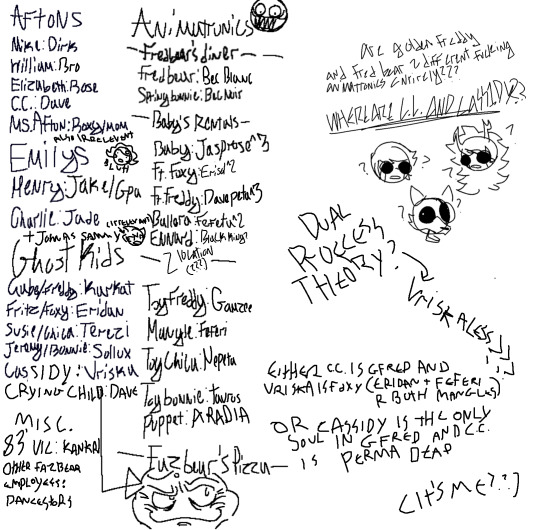 AFTONS
Mike: Dirk
William: Bro
Elizabeth: Rose
C.C.: Dave
MS. Afton: Roxy/mom
Emilys
Henry: Jake/Gpa
Charlie: Jade
Ghost Kids
Gabe/Freddy: Karkat
Fritz/Foxy: Eridan
Susie/Chica: Terezi
Jeremy/Bonnie: Sollux
Cassidy: Vriska
CRYING CHILD: DAVE
MISC.
83' VIC: KANKRI
OTHER FAZBEAR
EMPLOYEES:
DANCESTORS
Animatronics
-Fredbear's diner-
Fredbear: Bec Blanc
Springbonnie: Bec Noir
-Baby's Rentals-
Baby: Jasprose^3
Ft. Foxy: Erisol^2
Ft. Freddy: Davepeta^3
Ballora: Fefeta^2
Ennard: Black King?
- 2 location -
(???)
Toy Freddy: Gamzee
Mangle: Feferi
Toy Chica: Nepeta
Toy bonnie: Tavros
Puppet: ARADIA
-Fazbear's Pizza-
are golden freddy
and fred bear 2 different fucking
animatronics entirely???
WHERE ARE C.C. AND CASSIDY??
? ?
? ?
? ?
DUAL
PROCESS
THEORY?
VRISKALESS
EITHER C.C. IS G FRED AND
VRISKA IS FOXY (ERIDAN + FEFERI
R BOTH MANGLES)
OR CASSIDY IS THE ONLY
SOUL IN G FRED AND C.C.
IS PERMA DEAD
(IT'S ME??)